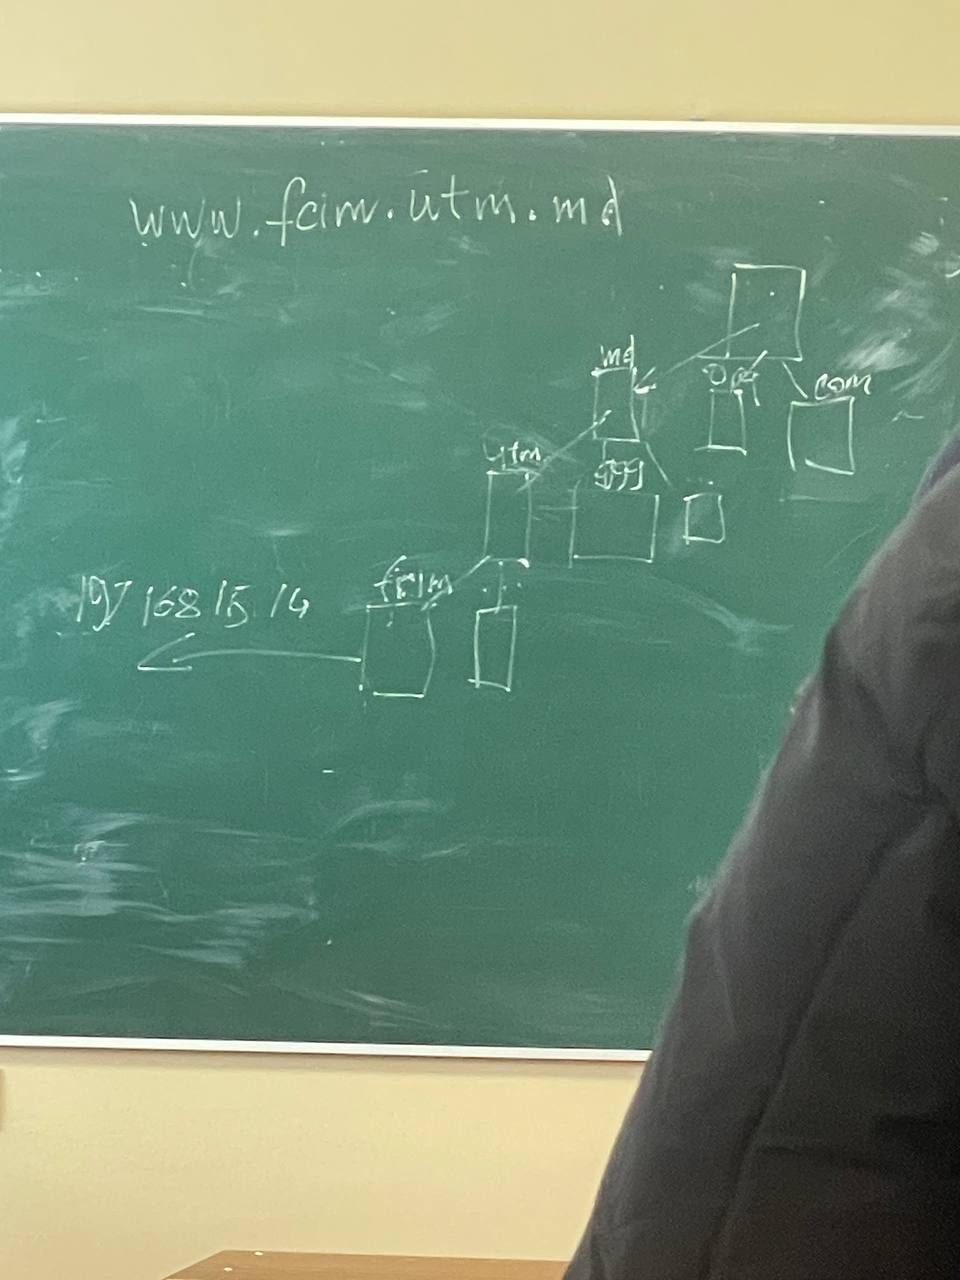 www.fcim.utm.md
md
org
com
utm
999
fcim
192 168 15 14